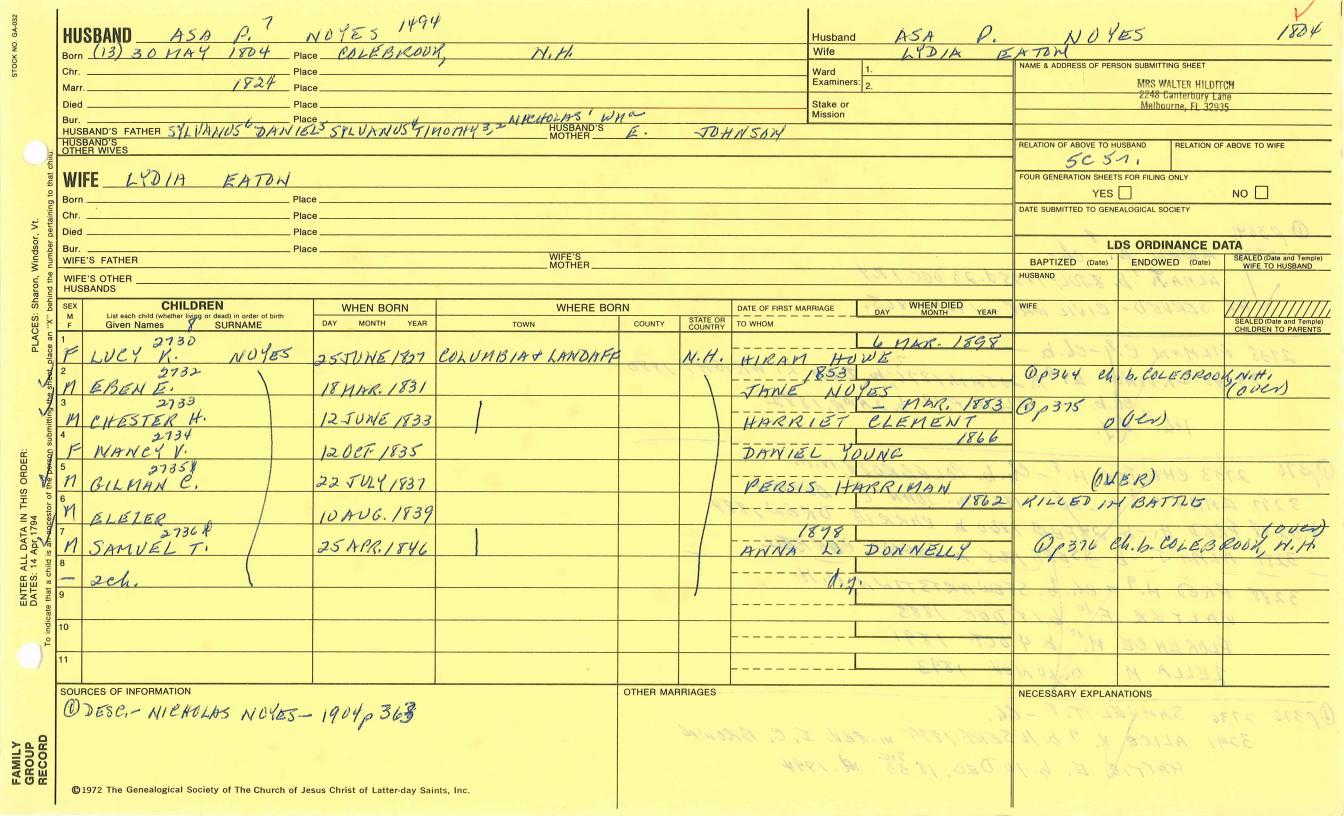 STOCK NO. GA-032
HUSBAND ASA P. 7 NOYES 1494
Born (13) 30 MAY 1804 Place COLEBROOK, N.H.
Chr. Place
Marr. 1824 Place
Died Place
Bur. Place
HUSBAND'S FATHER SYLVANUS 6 DANIEL 5 SYLVANUS 4 TIMOTHY 3, 2 NICHOLAS' Wm HUSBAND'S MOTHER E. JOHNSON
HUSBAND'S OTHER WIVES
WIFE LYDIA EATON
Born Place
Chr. Place
Died Place
Bur. Place
WIFE'S FATHER WIFE'S MOTHER
WIFE'S OTHER HUSBANDS
Husband ASA P. NOYES 1804
Wife LYDIA EATON
Ward Examiners: 1. 2.
Stake or Mission
NAME & ADDRESS OF PERSON SUBMITTING SHEET
MRS WALTER HILDITCH
2248 Canterbury Lane
Melbourne, FL 32935
RELATION OF ABOVE TO HUSBAND RELATION OF ABOVE TO WIFE
5C 5r.
FOUR GENERATION SHEETS FOR FILING ONLY
YES NO
DATE SUBMITTED TO GENEALOGICAL SOCIETY
LDS ORDINANCE DATA
BAPTIZED (Date) ENDOWED (Date) SEALED (Date and Temple) WIFE TO HUSBAND
HUSBAND
WIFE
SEALED (Date and Temple) CHILDREN TO PARENTS
SEX M F
CHILDREN
List each child (whether living or dead) in order of birth
Given Names 8 SURNAME
WHEN BORN
DAY MONTH YEAR
WHERE BORN
TOWN COUNTY STATE OR COUNTRY
DATE OF FIRST MARRIAGE
TO WHOM
WHEN DIED
DAY MONTH YEAR
1 2730 6 MAR. 1898
F LUCY K. NOYES 25 JUNE 1827 COLUMBIA & LANDAFF N.H. HIRAM HOWE
2 2732 1853 ①p364 ch. b. COLEBROOK, N.H.
M EBEN E. 18 MAR. 1831 JANE NOYES (over)
3 2733 – MAR. 1883 ①p375
M CHESTER H. 12 JUNE 1833 HARRIET CLEMENT (over)
4 2734 1866
F NANCY V. 12 OCT 1835 DANIEL YOUNG
5 2735
M GILMAN C. 22 JULY 1837 PERSIS HARRIMAN (OVER)
6 1862 KILLED IN BATTLE
M ELEZER 10 AUG. 1839
7 2736 1898 (over)
M SAMUEL T. 25 APR. 1846 ANNA L. DONNELLY ①p376 ch. b. COLEBROOK, N.H.
8
– 2ch. d.y.
9
10
11
SOURCES OF INFORMATION
① DESC.- NICHOLAS NOYES- 1904 p 363
OTHER MARRIAGES
NECESSARY EXPLANATIONS
©1972 The Genealogical Society of The Church of Jesus Christ of Latter-day Saints, Inc.
FAMILY GROUP RECORD
ENTER ALL DATA IN THIS ORDER:
DATES: 14 Apr 1794
PLACES: Sharon, Windsor, Vt.
To indicate that a child is an ancestor of the person submitting the sheet, place an "X" behind the number pertaining to that child.